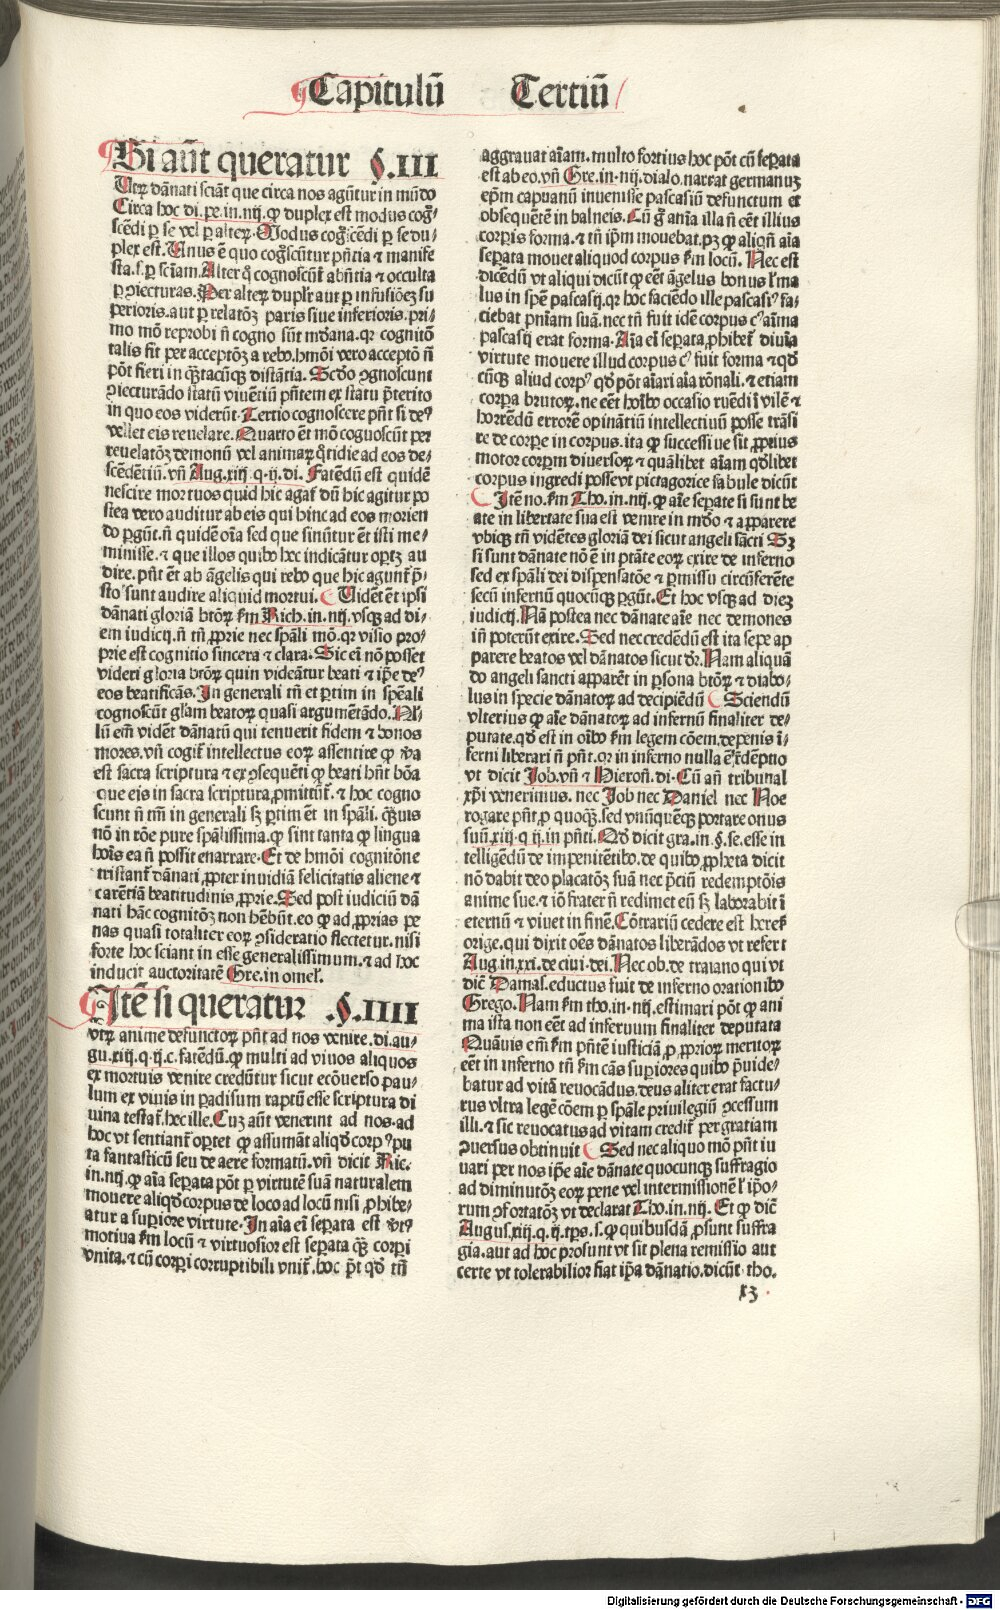 Capitulū Tertiū
Si aūt queratur §.III
Utrꝫ dānati sciāt que circa nos agūtur in mūdo
Circa hoc di. pe. in. iiij. ꝙ duplex est modus coḡ-
scēdi per se vel ꝑ alteꝝ. Modus coḡscēdi ꝑ se du-
plex est. Unus ē quo coḡscūtur pn̄tia et manife
sta. s. ꝑ sciam. Alter q̄ cognoscūt abn̄tia et occulta
ꝑ ꝯiecturas. Per alteꝝ dupl'r aut ꝑ infusiōeꝫ su
perioris. aut ꝑ relatōꝫ paris siue inferioris. pri-
mo mō reprobi n̄ cogno sūnt mūdana. qꝛ cognitō
talis fit per acceptōꝫ a rebꝰ. hmōi vero acceptō n̄
pōt fieri in q̄ꝫtacūꝗꝫ distātia. Scdō ꝯgnoscunt
ꝯiecturādo statū viuētiū pn̄tem ex statu p̄terito
in quo eos viderūt. Tertio cognoscere pn̄t si deꝰ
vellet eis reuelare. Quarto ēt mō cognoscūt per
reuelatōꝫ demonū vel animaꝝ q̄tidie ad eos de-
scēdētiū. vn̄ Aug. xiij. q. ij. di. Fatēdū est quidē
nescire mortuos quid hic agat' dū hic agitur po
stea vero auditur ab eis qui hinc ad eos morien
do ꝑgūt. n̄ quidē oīa sed que sinūtur ēt isti me-
minisse. et que illos quibꝰ hec indicātur oꝑtꝫ au
dire. pn̄t ēt ab āgelis qui rebꝰ que hic agunt' p̄-
sto sunt audire aliquid mortui. Vidēt ēt ipsi
dānati gloriā btōꝝ ẜm Rich. in. iiij. vsqꝫ ad di-
em iudicij. n̄ tn̄ ꝓprie nec spāli mō. qꝛ visio pro-
prie est cognitio sincera et clara. Sic ei nō posset
videri gloria btōꝝ quin videātur beati et ip̄e deꝰ
eos beatificās. In generali tn̄ et ꝑtim in spēali
cognoscūt gl'am beatoꝝ quasi argumētādo. Nl'-
lū em̄ vidēt dānatū qui tenuerit fidem et bonos
mores. vn̄ cogit' intellectus eoꝝ assentire ꝙ v̄a
est sacra scriptura et ex ꝯsequēti ꝙ beati hn̄t bōa
que eis in sacra scriptura ꝓmittūt'. et hoc cogno
scunt n̄ tm̄ in generali sꝫ ꝑtim ēt in spāli. q̄ꝫuis
nō in rōe pure spālissima. ꝙ sint tanta ꝙ lingua
hoīs ea n̄ possit enarrare. Et de hmōi cognitōne
tristant' dānati, ꝓpter inuidiā felicitatis aliene et
carētiā beatitudinis ꝓprie. Sed post iudiciū dā
nati hāc cognitōꝫ non hēbūt. eo ꝙ ad ꝓprias pe
nas quasi totaliter eoꝝ ꝯsideratio flectetur. nisi
forte hoc sciant in esse generalissimum. et ad hoc
inducit auctoritatē Gre. in omel'.
Itē si queratur .§.IIII
vtrꝫ anime defunctoꝝ pn̄t ad nos venire. di. au-
gu. xiij. q. ij. c. fatēdū. ꝙ multi ad viuos aliquos
ex mortuis venire credūtur sicut ecōuerso pau-
lum ex viuis in paradisum raptū esse scriptura di
uina testat'. hec ille. Cuꝫ aūt venerint ad nos. ad
hoc vt sentiant' oꝑtet ꝙ assumāt aliqd̄ corpꝰ pu
ta fantasticū seu de aere formatū. vn̄ dicit Ric.
in. iiij. ꝙ aīa seꝑata pōt ꝑ virtutē suā naturalem
mouere aliqd̄ corpus de loco ad locū nisi ꝓhibe-
atur a suꝑiore virtute. In aīa ei seꝑata est v̄tꝰ
motiua ẜm locū et virtuosior est seꝑata q̄ꝫ corpori
vnita. et cū corꝑi corruptibili vnit'. hoc p̄t qd̄ tn̄
aggrauat aīam. multo fortius hoc pōt cū seꝑata
est ab eo. vn̄ Gre. in. iiij. dialo. narrat germanuꝫ
ep̄m capuanū inuenisse pascasiū defunctum et
obsequētē in balneis. Cū g̊ anīa illa n̄ cēt illius
corpis forma. et tn̄ ip̄m mouebat. pꝫ ꝙ aliqn̄ aīa
seꝑata mouet aliquod corpus ẜm locū. Nec est
dicēdū vt aliqui dicūt ꝙ cēt āgelus bonus l' ma
lus in spē pascasij. qꝛ hoc faciēdo ille pascasiꝰ fa-
ciebat pniam suā. nec tn̄ fuit idē corpus cꝰ aīma
pascasij erat forma. Aīa ei seꝑata ꝓhibet' diuīa
virtute mouere illud corpus cꝰ fuit forma et qd̄
cūꝗꝫ aliud corpꝰ qd̄ pōt aīari aīa rōnali. et etiam
corpa brutoꝝ. ne cēt hoībꝰ occasio ruēdi ī vilē et
horrēdū errorē opinātiū intellectiuū posse trāsi
re de corpe in corpus. ita ꝙ successiue sit ꝓprius
motor corpm̄ diuersoꝝ et quālibet aīam qd̄libet
corpus ingredi posse vt pictagorice fabule dicūt
Itē no. ẜm Tho. in. iiij. ꝙ aīe seꝑate si sunt be
ate in libertate sua est venire in mūdo et apparere
vbicꝫ tn̄ vidētes gloriā dei sicut angeli sācti Sꝫ
si sunt dānate nō ē in ptāte eoꝝ exire de inferno
sed ex spāli dei dispensatōe et ꝑmissu circūferēte
secū infernū quocūꝗꝫ ꝑgūt. Et hoc vsqꝫ ad dieꝫ
iudicij. Nā postea nec dānate aīe nec demones
in̄ poterūt exire. Sed nec credēdū est ita sepe ap
parere beatos vel dānatos sicut dr̄. Nam aliquā
do angeli sancti apparēt in ꝑsona btōꝝ et diabo-
lus in specie dānatoꝝ ad decipiēdū Sciendū
vlterius ꝙ aīe dānatoꝝ ad infernū finaliter de-
putate. qd̄ est in oībꝰ ẜm legem cōem. de penis ī-
ferni liberari n̄ pn̄t. qꝛ in inferno nulla ē rēdēptio
vt dicit Job. vn̄ et Hieroñ. di. Cū añ tribunal
xp̄i venerimus. nec Job nec Daniel nec Noe
rogare pn̄t ꝓ quoqꝫ. sed vnūquēqꝫ portare onus
suū. xiij. q. ij. in pn̄ti. Qd̄ dicit gra. in. §. se. esse in
telligēdū de impenitētibꝰ. de quibꝰ ꝓpheta dicit
nō dabit deo placatōꝫ suā nec p̄ciū redemptōis
anime sue. et iō frater n̄ redimet eū sꝫ laborabit ī
eternū et viuet in finē. Cōtrariū cedere est heresꝪ
orige. qui dixit oēs dānatos liberādos vt refert
Aug. in. xxi. de ciui. dei. Nec ob. de traiano qui vt
dic̄ Damas. eductus fuit de inferno orationibꝰ
Grego. Nam ẜm tho. in. iiij. estimari pōt ꝙ ani
ma ista non eēt ad infernum finaliter deputata
Quāuis em̄ ẜm pn̄tē iusticiā ꝓ ꝓprioꝝ meritoꝝ
eēt in inferno tn̄ ẜm cās suꝑiores quibꝰ p̄uide-
batur ad vitā reuocādus. deus aliter erat factu-
rus vltra legē cōem ꝑ spāle priuilegiū ꝯcessum
illi. et sic reuocatus ad vitam credit' per gratiam
ꝯuersus obtinuit Sed nec aliquo mō pn̄t iu
uari per nos ip̄e aīe dānate quocunqꝫ suffragio
ad diminutōꝫ eoꝝ pene vel intermissionē l' ip̄o-
rum ꝯfortatōꝫ vt declarat Tho. in. iiij. Et ꝙ dic̄
Augus. xiij. q. ij. tp̄s. s. ꝙ quibusdā ꝓsunt suffra
gia. aut ad hoc prosunt vt sit plena remissio aut
certe vt tolerabilior fiat ip̄a dānatio. dicūt tho.
x3
Digitalisierung gefördert durch die Deutsche Forschungsgemeinschaft - DFG